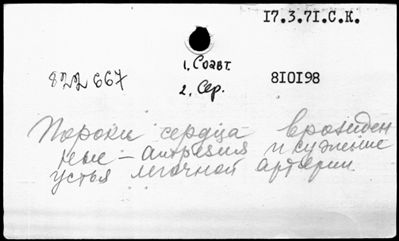 17.3.71.С.К.
1, Соавт.
822 667
2, Сер.
810198
Пороки сердца врожден
ные - антрезия и сужение
устья легочной артерии.